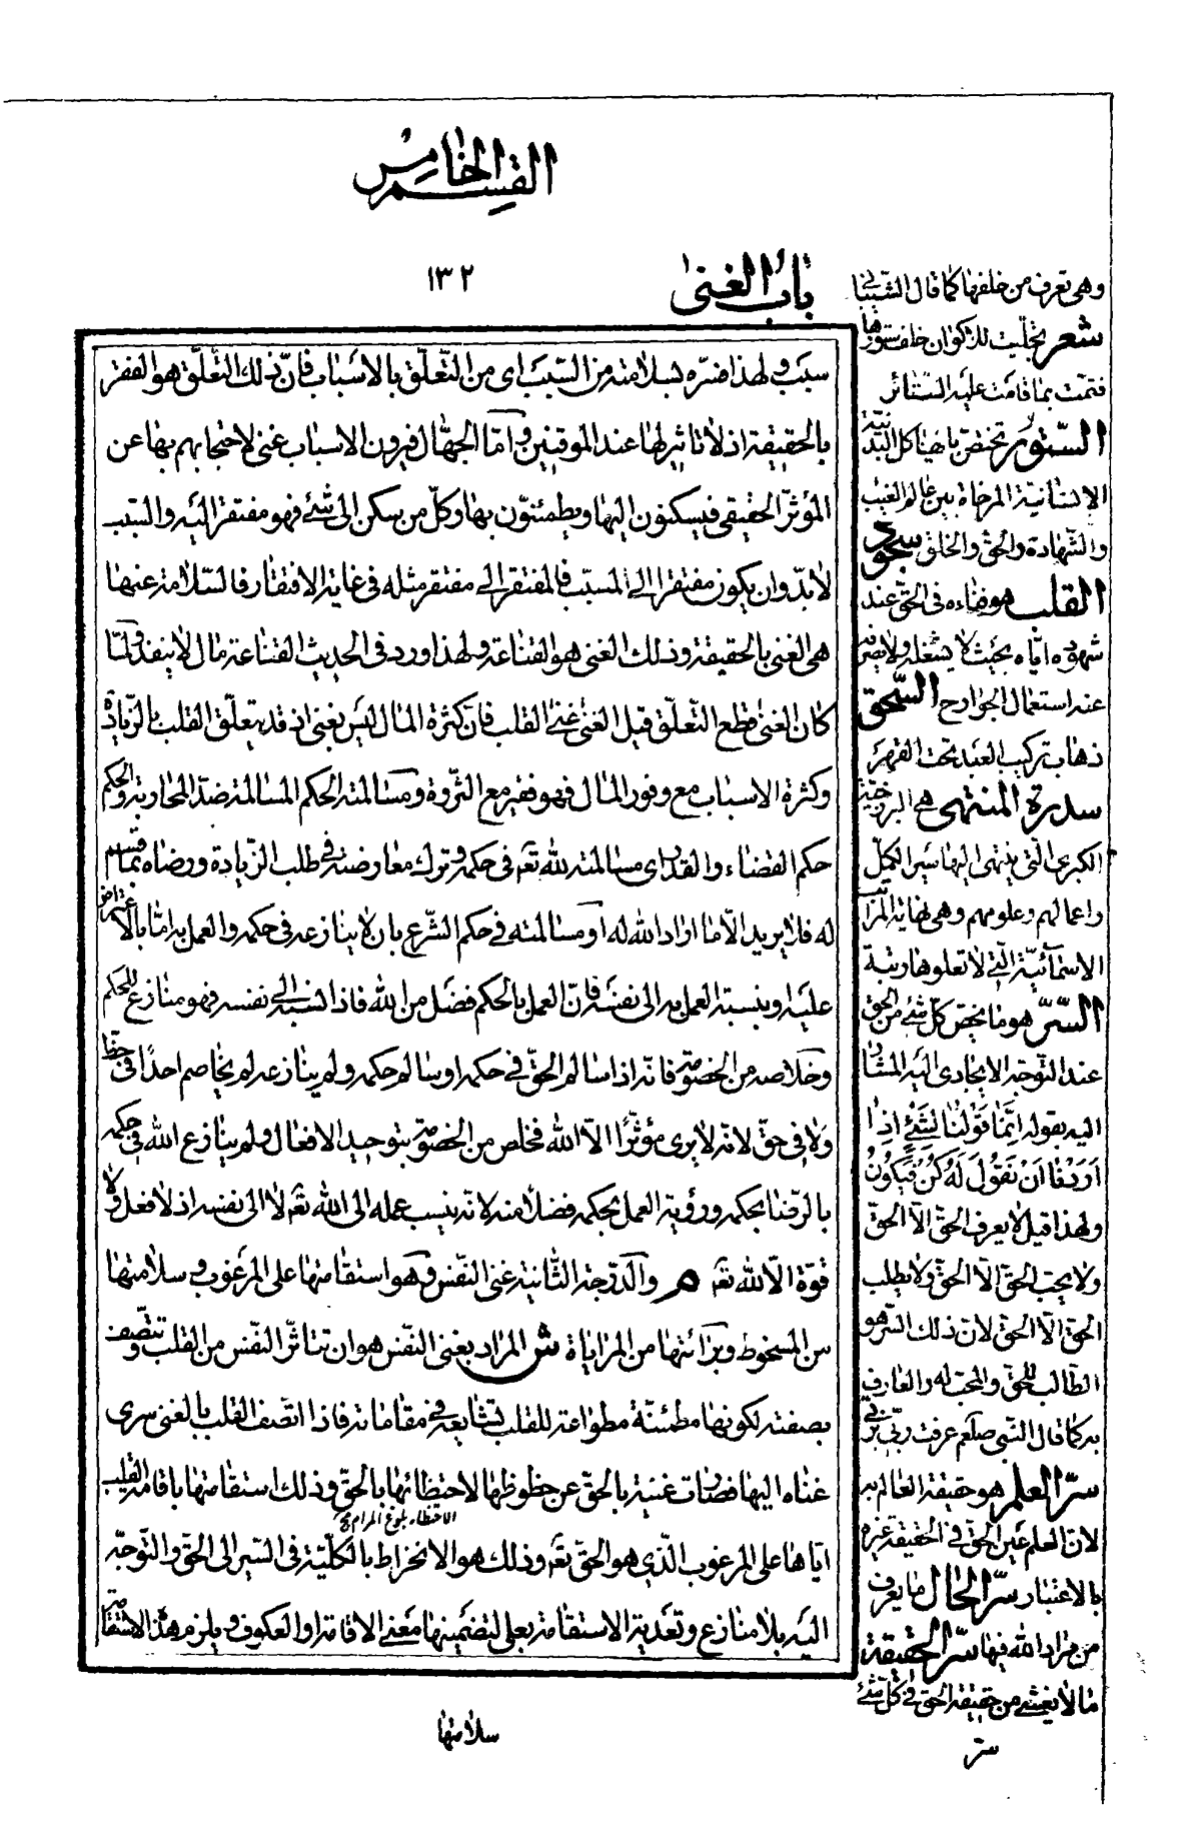 القسم الخامس
باب الغنى
۱۳۲
سبب ولهذا فسّره بسلامته من السّبب اى من التّعلّق بالاسباب فانّ ذلك التعلّق هو الفقر
بالحقيقة اذ لا تاثير لها عند الموقنين وامّا الجهّال فيرون الاسباب غنى لاحتجابهم بها عن
المؤثّر الحقيقى فيسكنون اليها ويطمئنّون بها وكلّ من سكن الى شئ فهو مفتقر اليه والسّبب
لا بدّ وان يكون مفتقرا الى المسبّب فالمفتقر الى مفتقر مثله فى غاية الافتقار فالسّلامة عنها
هى الغنى بالحقيقة وذلك الغنى هو القناعة ولهذا ورد فى الحديث القناعة مال لا ينفد ولمّا
كان الغنى قطع التّعلّق قيل الغنى غنى القلب فانّ كثرة المال ليس بغنى اذ قد يتعلّق القلب بالزّيادة
وكثرة الاسباب مع وفور المال فهو فقير مع الثّروة ومسالمته الحكم المسالمة ضدّ المحاربة والحكم
حكم القضاء والقدر اى مسالمته لله تعم فى حكمه وترك معارضته فى طلب الزّيادة ورضاه بما قسم
له فلا يريد الّا ما اراد الله له او مسالمته فى حكم الشّرع بان لا ينازعه فى حكمه والعمل به امّا بالاعتراض
عليه او بنسبة العمل به الى نفسه فانّ العمل بالحكم فضل من الله فاذا نسبه الى نفسه فهو منازع للحكم
وخلاصه من الخصومة فانّه اذا سالم الحقّ فى حكمه او سالم حكمه ولم ينازعه لم يخاصم احدًا فى حظّ
ولا فى حقّ لانّه لا يرى مؤثّرًا الّا الله فخلص من الخصومة بتوحيد الافعال ولم ينازع الله فى حكمه
بالرّضا بحكمه ورؤية العمل بحكمه فضلا منه لانّه ينسب عمله الى الله تعم لا الى نفسه اذ لا فعل ولا
قوّة الّا لله تعم م والدّرجة الثّانية غنى النّفس وهو استقامتها على المرغوب وسلامتها
من المسخوط وبرائتها من المراياة ش المراد بغنى النّفس هو ان تتاثّر النّفس من القلب وتتّصف
بصفته لكونها مطمئنّة مطواعة للقلب تشايعه فى مقاماته فاذا اتّصف القلب بالغنى سرى
غناه اليها فصارت غنية بالحقّ عن حظوظها لاحتظائها بالحقّ وذلك استقامتها باقامة القلب
الاحتظاء بلوغ المرام
ايّاها على المرغوب الّذى هو الحقّ تعم وذلك هو الانخراط بالكلّيّة فى السّير الى الحقّ والتّوجّه
اليه بلا منازع وتعدية الاستقامة بعلى لتضمينها معنى الاقامة او العكوف ويلزم هذا الاستقامة
سلامتها
وهى تعرف من خلفها كما قال الشّيبانى
شعر تجلّيت للاكوان خلف ستورها
فنمّت بما قامت عليه السّتائر
السّتور تختصّ بالهياكل البدنيّة
الانسانيّة المرخاة بين عالم الغيب
والشّهادة والحقّ والخلق سجود
القلب هو فناءه فى الحقّ عند
شهوده ايّاه بحيث لا يشغله ولا يصرفه
عنه استعمال الجوارح السّحق
ذهاب تركيب العبد تحت القهر
سدرة المنتهى هى البرزخيّة
الكبرى التى ينتهى اليها سير الكمّل
واعمالهم وعلومهم وهى نهاية المراتب
الاسمائيّة الّتى لا تعلوها رتبة
السّرّ هو ما يخصّ كلّ شئ من الحقّ
عند التّوجّه الايجادى اليه المشار
اليه بقوله اِنَّمَا قَوْلُنَا لِشَئٍ اِذَا
اَرَدْنَا اَنْ نَقُولَ لَهُ كُنْ فَيَكُونُ
ولهذا قيل لا يعرف الحقّ الّا الحقّ
ولا يحبّ الحقّ الّا الحقّ ولا يطلب
الحقّ الّا الحقّ لانّ ذلك السّر هو
الطّالب للحقّ والمحبّ له والعارف
به كما قال النّبى صلعم عرفت ربّى بربّى
سرّ العلم هو حقيقة العالم به
لانّ العلم عين الحقّ فى الحقيقة غيره
بالاعتبار سرّ الحال ما يعرف
من مراد الله فيها سرّ الحقيقة
ما لا يفشى من حقيقة الحقّ فى كلّ شئ
سرّ